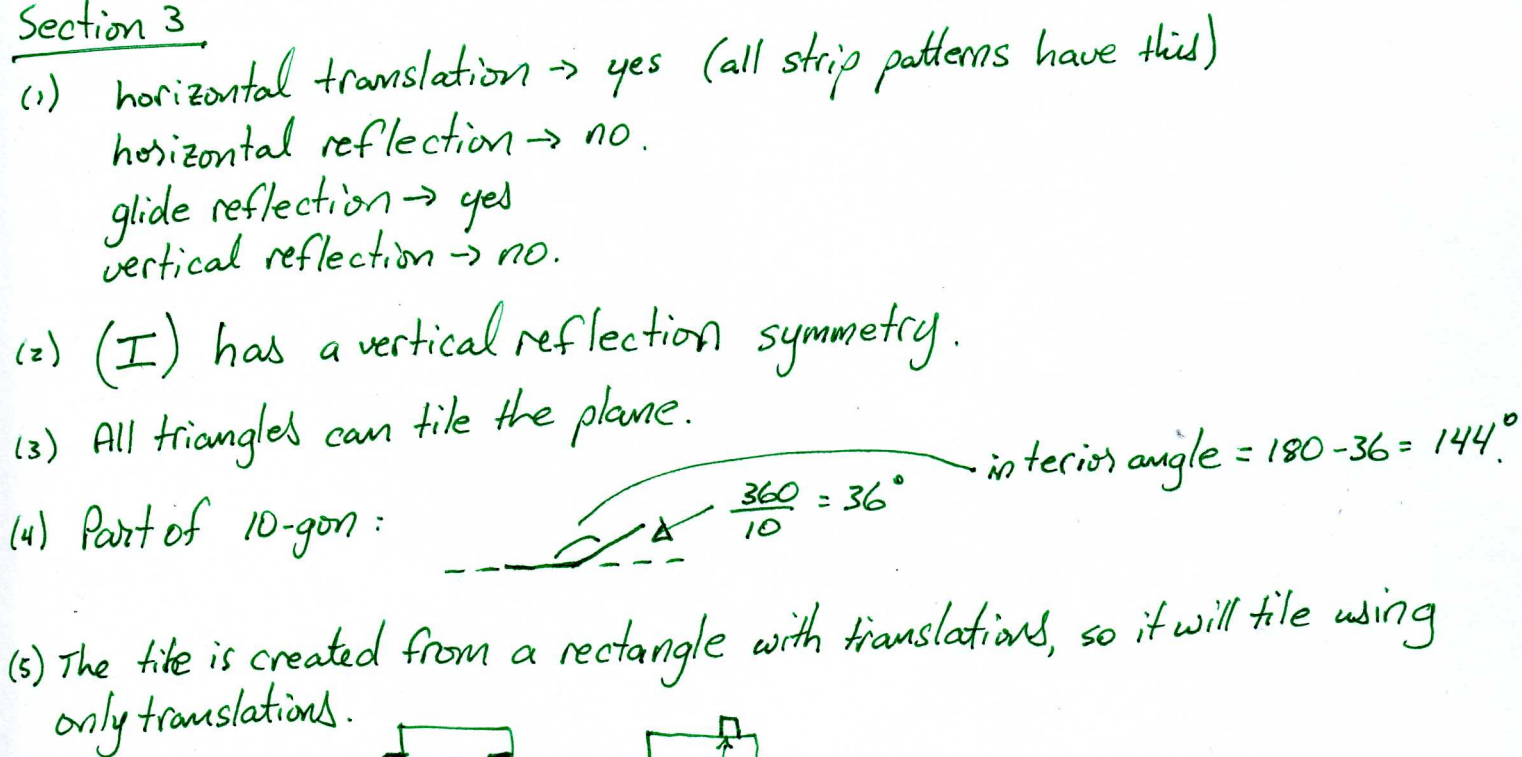 Section 3
(1) horizontal translation → yes (all strip patterns have this)
horizontal reflection → no.
glide reflection → yes
vertical reflection → no.
(2) (I) has a vertical reflection symmetry.
(3) All triangles can tile the plane.
interior angle = 180 - 36 = 144°.
(4) Part of 10-gon : 360/10 = 36°
(5) The tile is created from a rectangle with translations, so it will tile using
only translations.